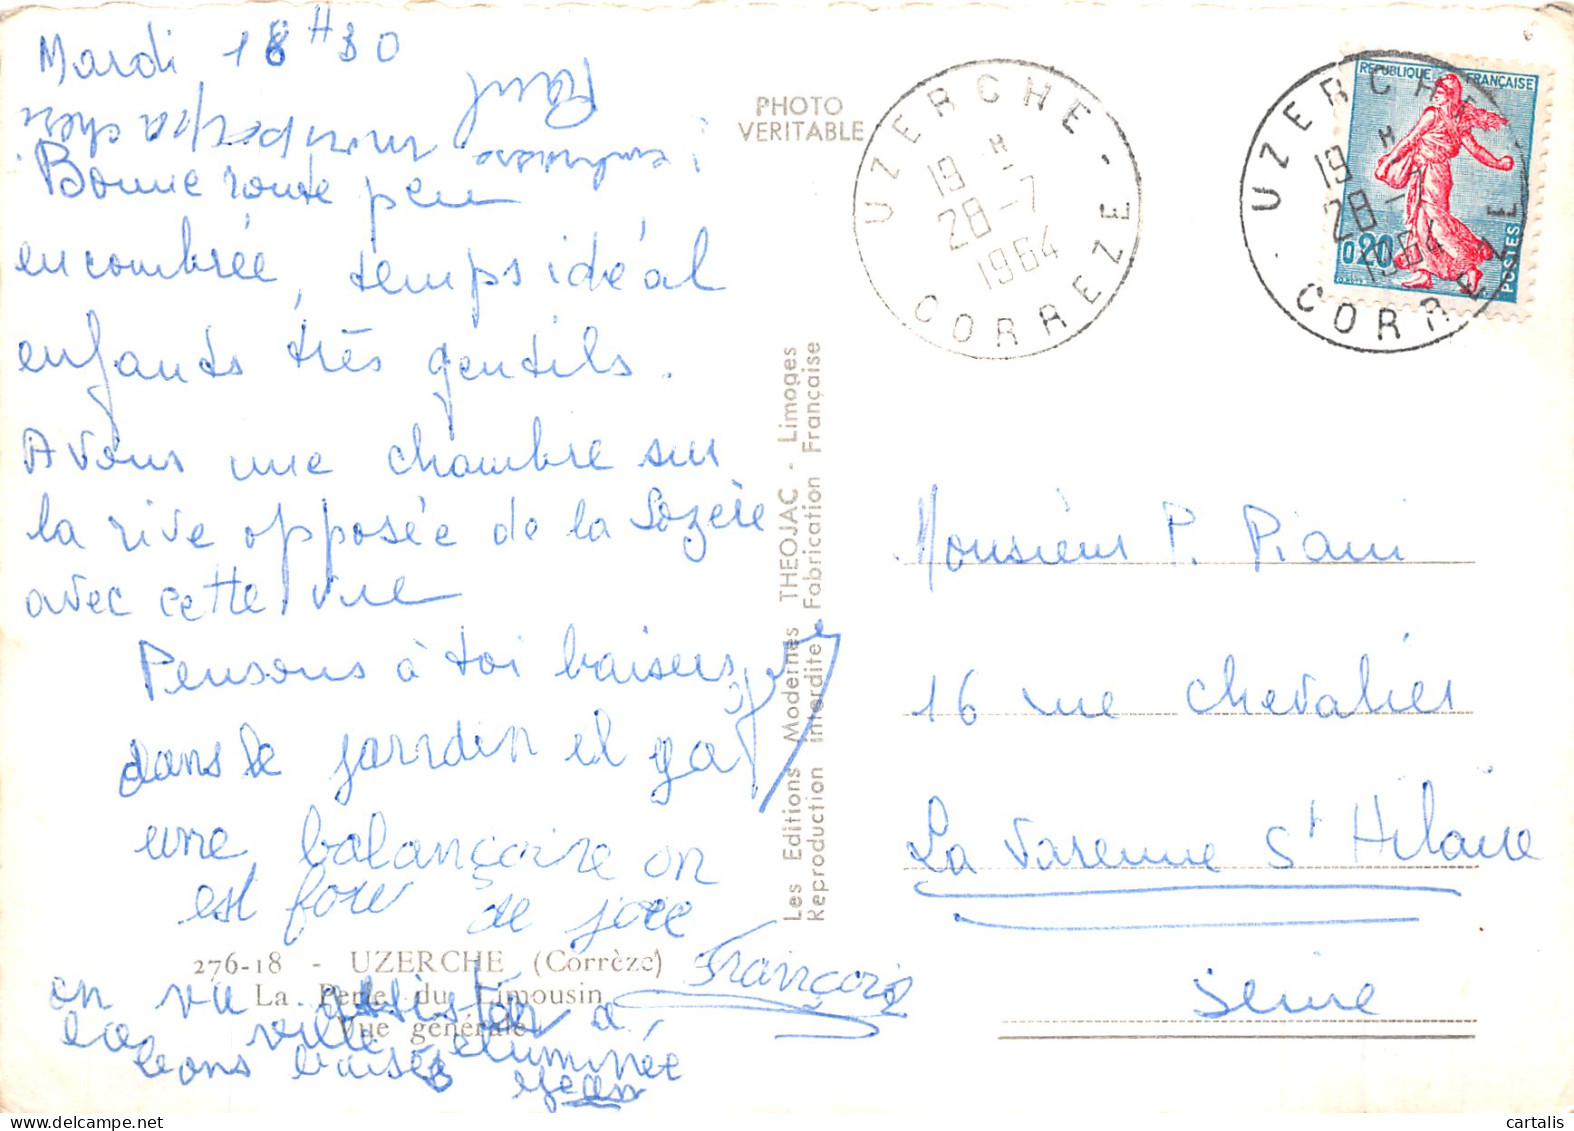 Mardi 18 H 30
Bonne route peu
encombrée, temps idéal
enfants très gentils.
Avons une chambre sur
la rive opposée de la Lozère
avec cette vue
Pensons à toi baisers
dans le jardin il y a
une balançoire on
est fou de joie
François
on vu
la ville eluminée
bons baisés
Jean
j'embrasse mon papa chéri
Paul
276-18 - UZERCHE (Corrèze)
La Perle du Limousin
Vue générale
PHOTO
VERITABLE
Les Editions Modernes THEOJAC - Limoges
Reproduction Interdite - Fabrication Française
UZERCHE
19 H
28-7
1964
CORREZE
UZERCHE
19 H
28-7
1964
CORREZE
REPUBLIQUE FRANÇAISE
0,20
POSTES
Monsieur P. Piani
16 rue Chevalier
La Varenne St Hilaire
Seine
cartalis